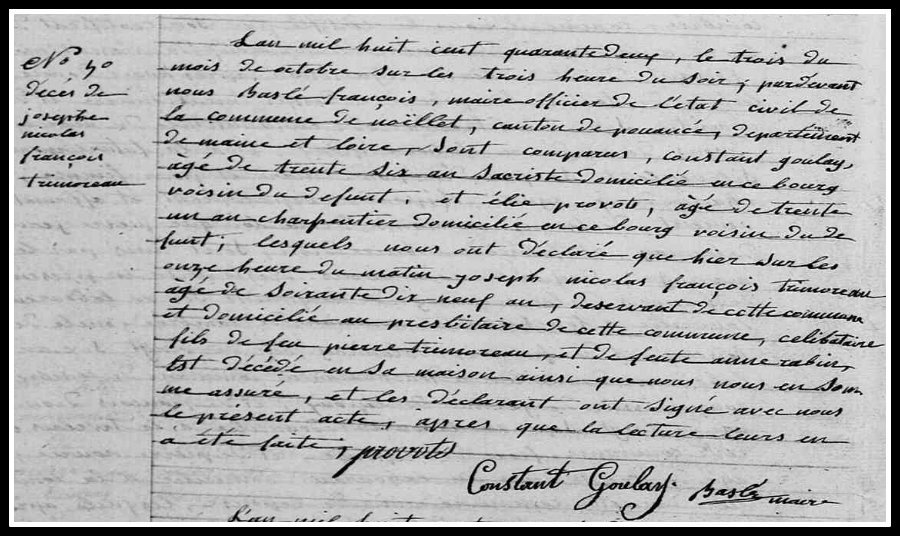 No 40
déces de
josephe
nicolas
françois
trimoreau
L'an mil huit cent quarante deux, le trois du
mois de octobre sur les trois heure du soir; pardevant
nous Baslé françois, maire officier de l'état civil de
la commune de noëllet, canton de pouancé, département
de maine et loire, sont comparus, constant goulay,
âgé de trente six an sacriste domicilié en ce bourg
voisin du defunt, et élie provots, âgé de trente
un an charpentier domicilié en ce bourg voisin du de
funt; lesquels nous ont déclaré que hier sur les
onze heure du matin joseph nicolas françois trimoreau
âgé de soixante dix neuf an, deservant de cette commune
et domicilié au presbitaire de cette commune, celibataire
fils de feu pierre trimoreau, et de feute anne rabin,
Est décédé en sa maison ainsi que nous nous en som
me assuré, et les déclarant ont signé avec nous
le present acte, apres que la lecture leurs en
a été faite; provots
Constant Goulay. Baslé maire
L'an mil huit